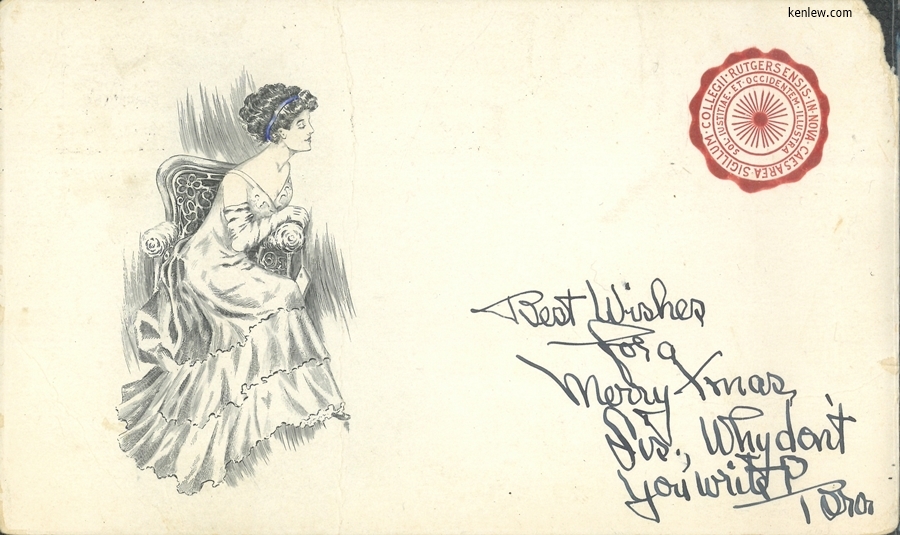 kenlew.com
SIGILLUM · COLLEGII · RUTGERSENSIS · IN · NOVA · CAESAREA
SOL IUSTITIAE · ET · OCCIDENTEM · ILLUSTRA
Best Wishes
for a
Merry Xmas,
Sis., Why don't
you write?
Bro.